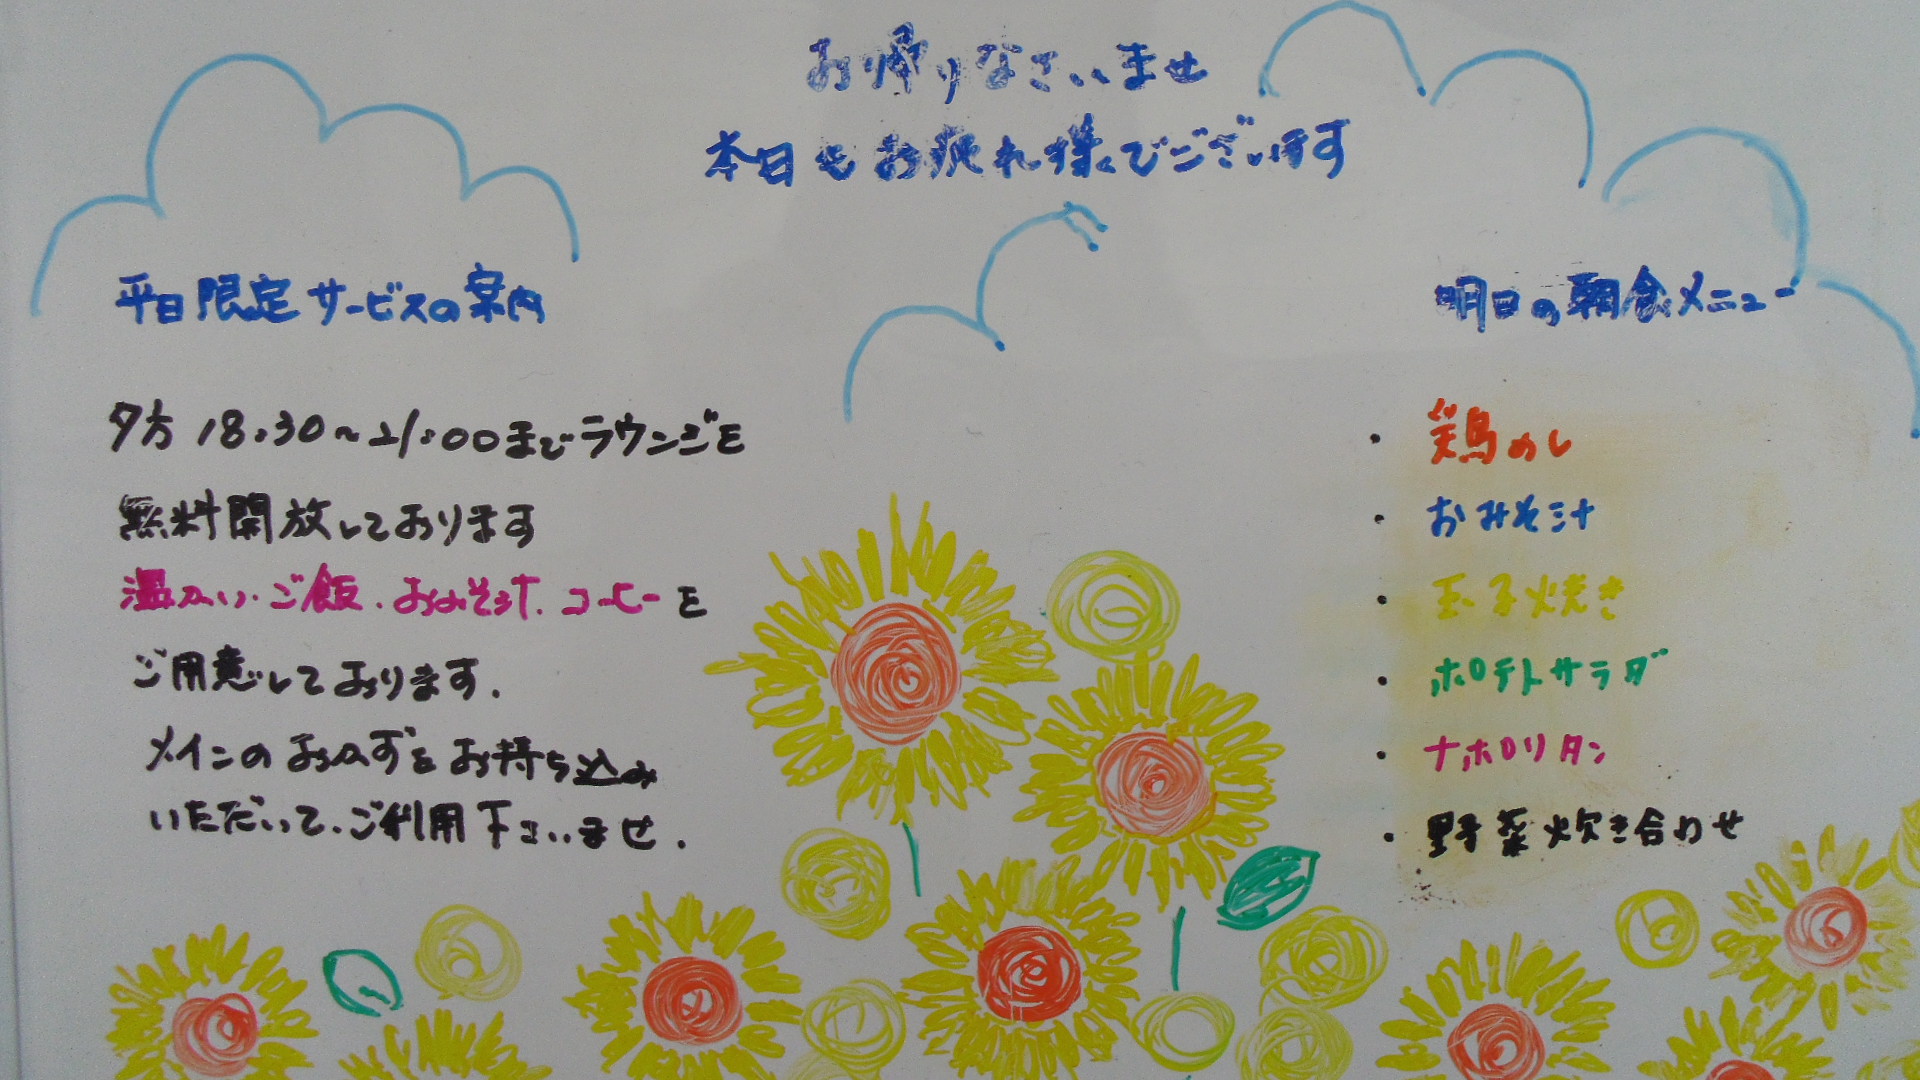 お帰りなさいませ
本日もお疲れ様でございます
平日限定サービスの案内
夕方 18:30～21:00までラウンジを
無料開放しております
温かい・ご飯・おみそ汁・コーヒーを
ご用意しております.
メインのおかずをお持ち込み
いただいて、ご利用下さいませ.
明日の朝食メニュー
・鶏めし
・おみそ汁
・玉子焼き
・ポテトサラダ
・ナポリタン
・野菜炊き合わせ